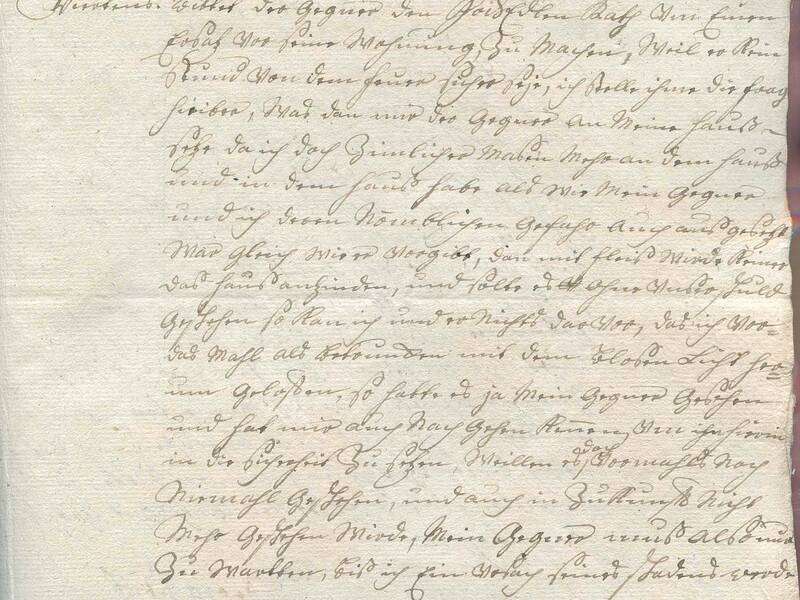 Viertens. bittet der Gegner den HochEdlen Rath Um Einen
Ersatz vor seine Wohnung, Zu Machen, Weil er Kein
Stund Von dem feuer sicher seye, ich stelle ihme die frag
hierüber, Was dan mir der Gegner an Meine hauß
setze da ich doch Zimlicher Masen Mehr an dem hauß
und in dem hauß habe als wie Mein Gegner
und ich deren Nemblichen Gefahr auch aus gesetzt
War gleich wie er Vorgibt, dan mit fleis Wirde Keiner
das hauß anzinden, und solte es ohne Unser schuld
Geschehen so Kan ich und er Nichts dar Vor, das ich Vor=
das Mahl als betrunken mit dem blosen Licht her=
um Geloffen, so hätte es ja Mein Gegner Gesehen
und hat mir auch Nach Gehen Kinnen, Um ihn hierin
in die Sicherheit Zu setzen, Weillen es doch Vormahls Noch
Niemahl Geschehen, und auch in Zukunft Nicht
Mehr Geschehen Wirde, Mein Gegner mus also nur
Zu Wartten, bis ich Ein Ursach seines schadens werde